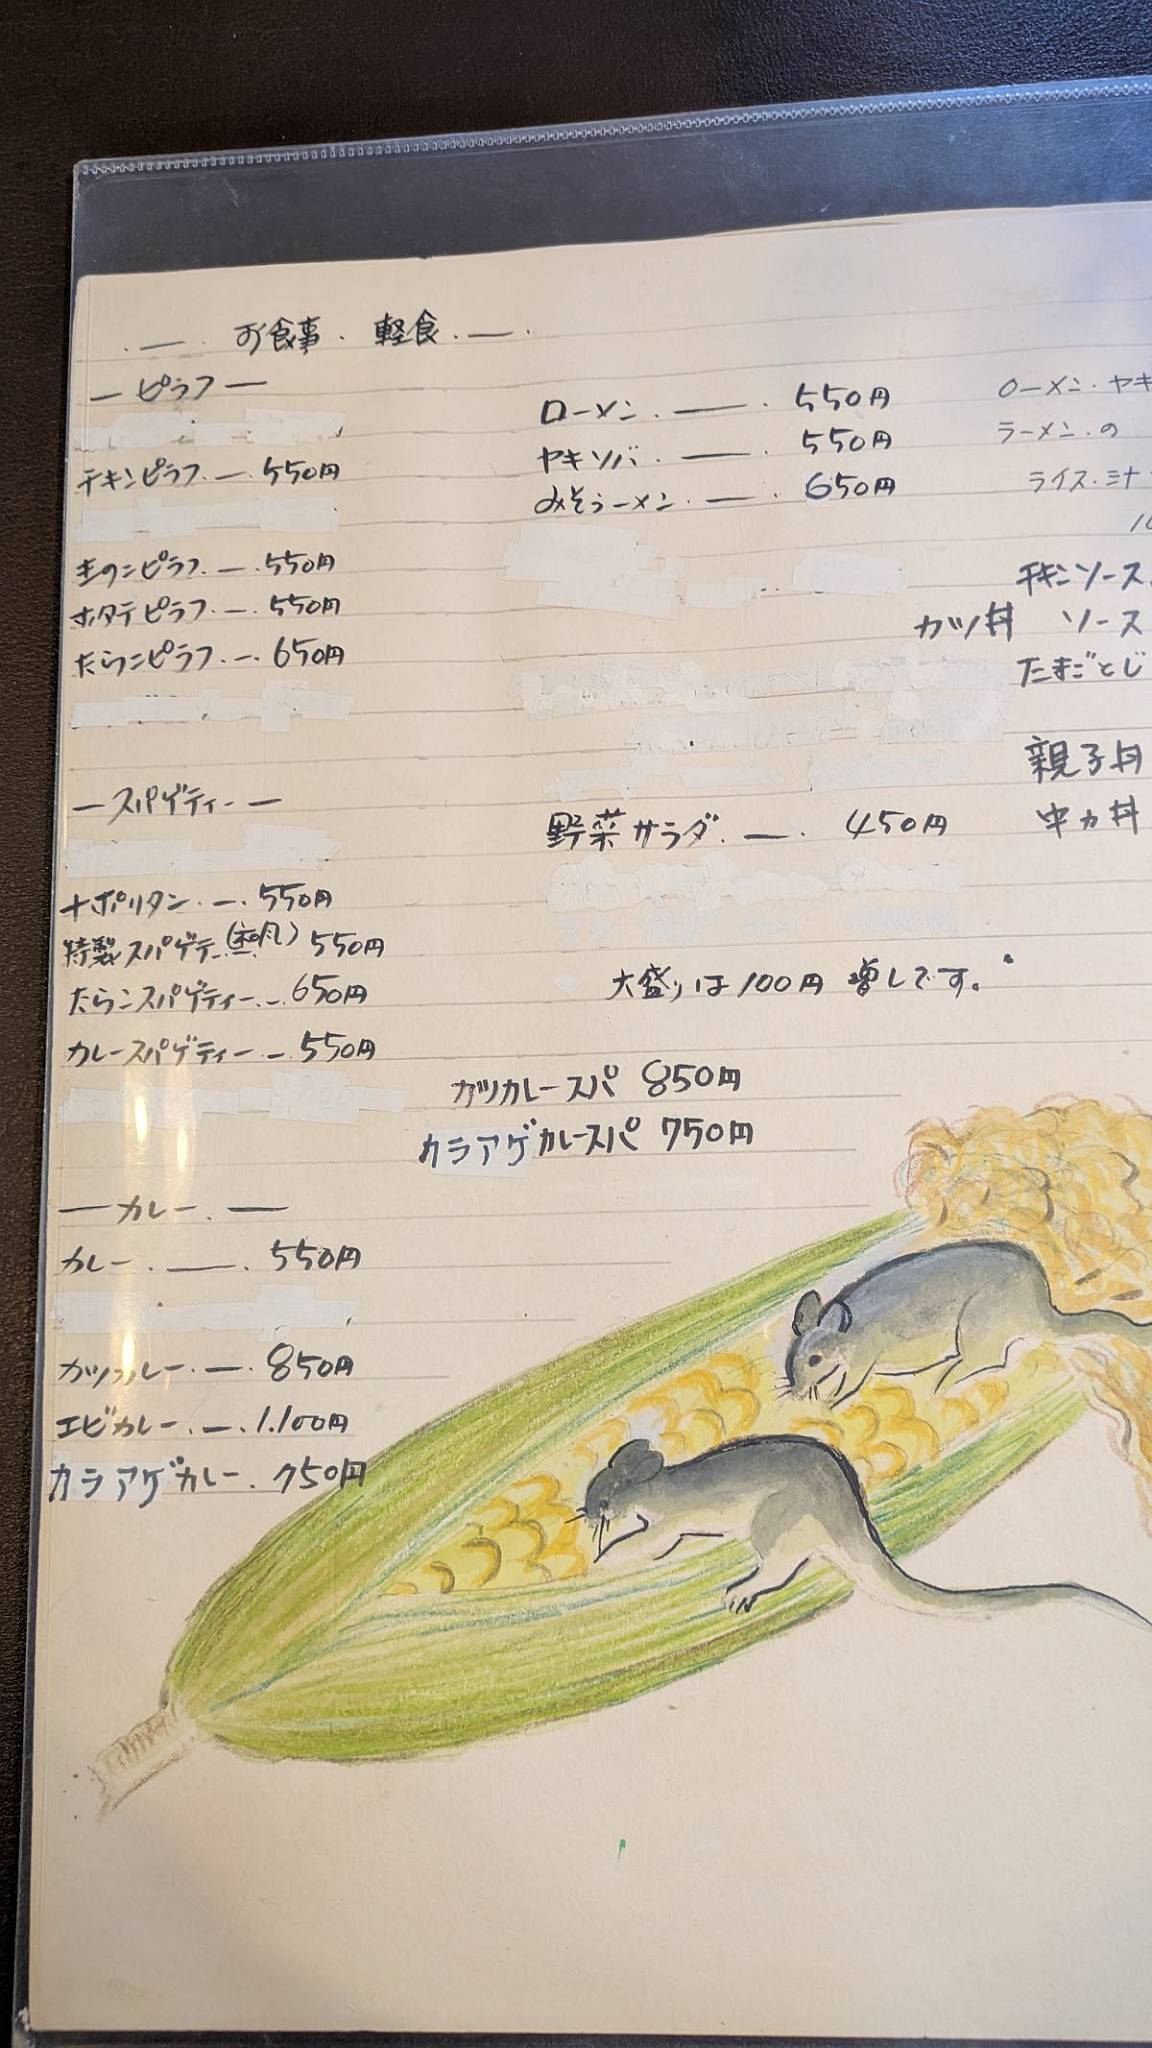 お食事・軽食
ピラフ
チキンピラフ 550円
きのこピラフ 550円
ホタテピラフ 550円
たらこピラフ 650円
スパゲティー
ナポリタン 550円
特製スパゲテー(和風) 550円
たらこスパゲティー 650円
カレースパゲティー 550円
カツカレースパ 850円
カラアゲカレースパ 750円
カレー
カレー 550円
カツカレー 850円
エビカレー 1.100円
カラアゲカレー 750円
ローメン 550円
ヤキソバ 550円
みそラーメン 650円
野菜サラダ 450円
大盛りは100円増しです。
ローメン・ヤキ
ラーメンの
ライス・汁
チキンソース
カツ丼 ソース
たまごとじ
親子丼
中カ丼